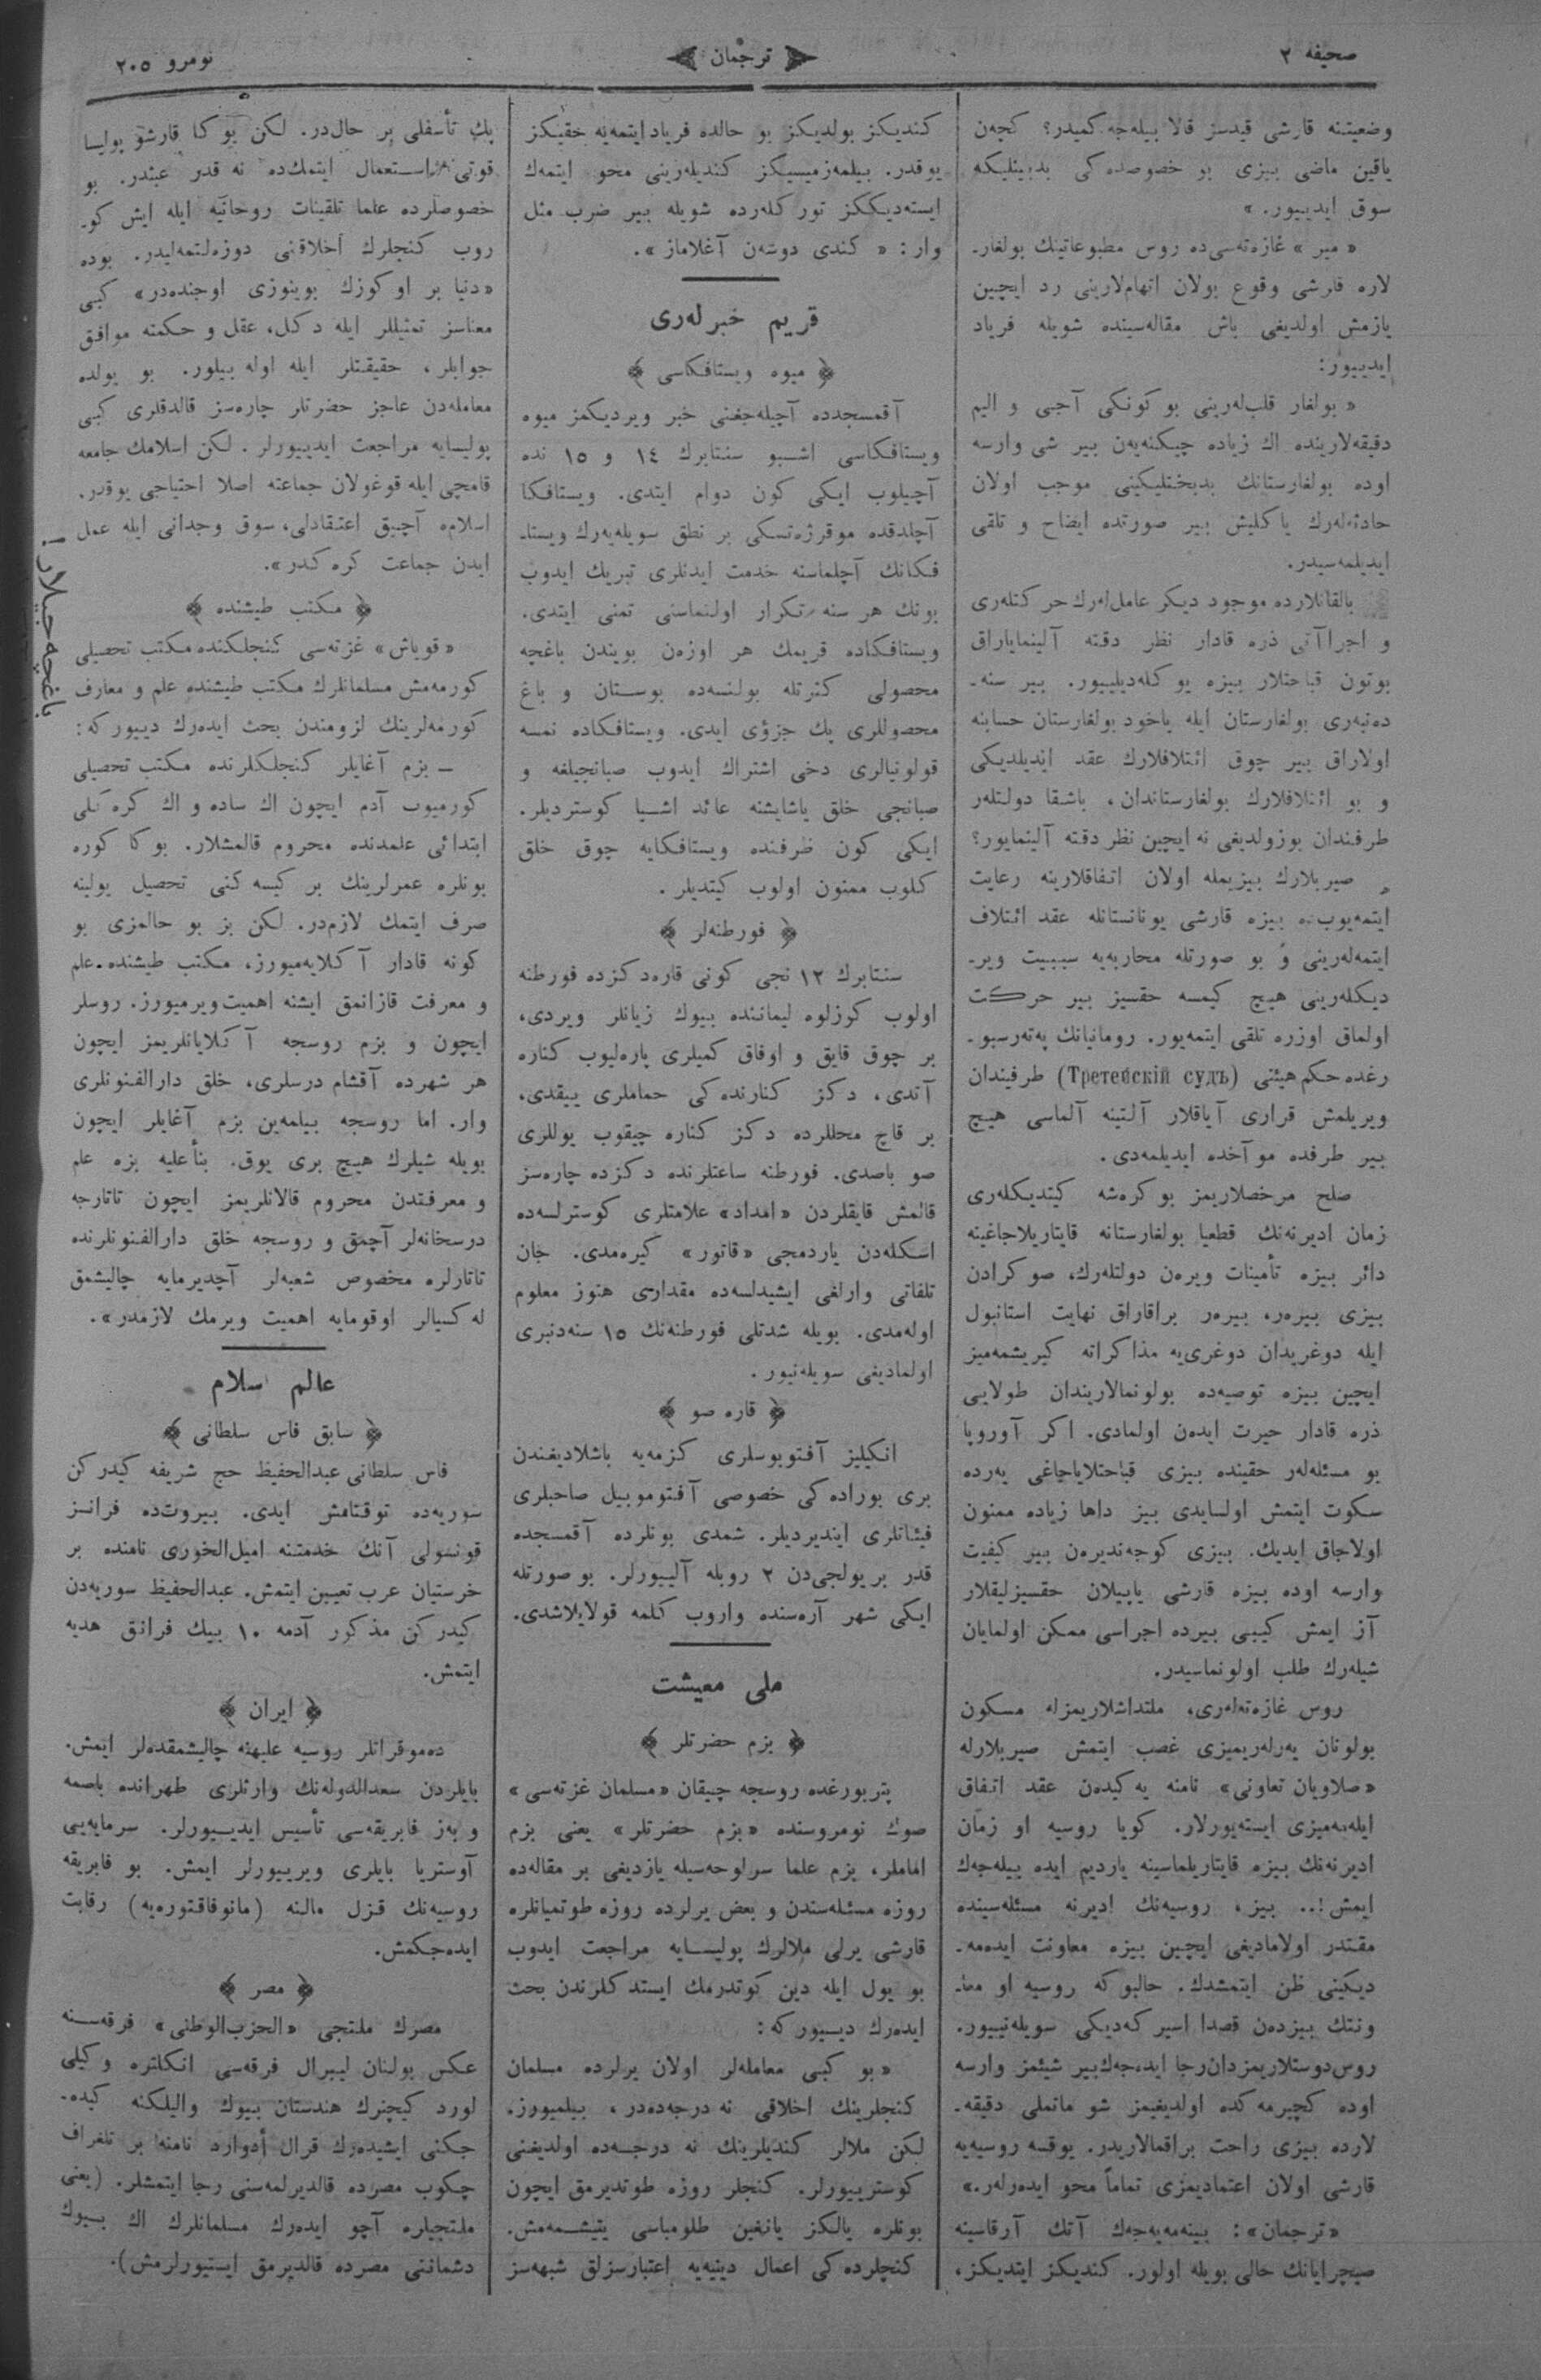 صحیفه ٢
ترجمان
نومرو ٢٠٥
وضعیتنه قارشی قیدسز قالا بیله‌جه‌کمیدر؟ کچه‌ن
یاقین ماضی بیزی بو خصوصده‌کی بدبینلیکه
سوق ایدییور. »
« میر » غازه‌ته‌سی‌ده روس مطبوعاتینك بولغار-
لاره قارشی وقوع بولان اتهام‌لارینی رد ایچین
یازمش اولدیغی باش مقاله‌سینده شویله فریاد
ایدییور:
« بولغار قلب‌له‌رینی بو کونکی آجی و الیم
دقیقه‌لارینده اك زیاده چیکنه‌یه‌ن بیر شی وارسه
اوده بولغارستانك بدبختلیکینی موجب اولان
حادثه‌له‌رك یاکلیش بیر صورتده ایضاح و تلقی
ایدیلمه‌سیدر.
بالقانلارده موجود دیکر عامل‌له‌رك حرکتله‌ری
و اجراآتی ذره قادار نظر دقته آلینمایاراق
بوتون قباحتلار بیزه یوکله‌دیلییور. بیر سنه-
ده‌نبه‌ری بولغارستان ایله یاخود بولغارستان حسابنه
اولاراق بیر چوق ائتلافلارك عقد ایدیلدیکی
و بو ائتلافلارك بولغارستاندان، باشقا دولتله‌ر
طرفندان بوزولدیغی نه ایچین نظر دقته آلینمایور؟
صیربلارك بیزیمله اولان اتفاقلارینه رعایت
ایتمه‌یوب‌ده بیزه قارشی یونانستانله عقد ائتلاف
ایتمه‌له‌رینی و بو صورتله محاربه‌یه سیببیت ویر-
دیکله‌رینی هیچ کیمسه حقسیز بیر حرکت
اولماق اوزره تلقی ایتمه‌یور. رومانیانك په‌ته‌رسبو-
رغده حکم هیئتی (Третейскій судъ) طرفیندان
ویریلمش قراری آیاقلار آلتینه آلماسی هیچ
بیر طرفده مو آخذه ایدیلمه‌دی.
صلح مرخصلاریمز بوکره‌شه کیتدیکله‌ری
زمان ادیرنه‌نك قطعیا بولغارستانه قایتاریلاجاغینه
دائر بیزه تأمینات ویره‌ن دولتله‌رك، صوکرادن
بیزی بیره‌ر، بیره‌ر براقاراق نهایت استانبول
ایله دوغریدان دوغری‌یه مذاکراته کیریشمه‌میز
ایچین بیزه توصیه‌ده بولونمالاریندان طولایی
ذره قادار حیرت ایده‌ن اولمادی. اکر آوروپا
بو مسئله‌له‌ر حقینده بیزی قباحتلایاجاغی یه‌رده
سکوت ایتمش اولسایدی بیز داها زیاده ممنون
اولاجاق ایدیك. بیزی کوجه‌ندیره‌ن بیر کیفیت
وارسه اوده بیزه قارشی یاپیلان حقسیزلیقلار
آز ایمش کیبی بیرده اجراسی ممکن اولمایان
شیله‌رك طلب اولونماسیدر.
روس غازه‌ته‌له‌ری، ملتداشلاریمزله مسکون
بولونان یه‌رله‌ریمیزی غصب ایتمش صیربلارله
«صلاویان تعاونی» نامنه یه‌کیده‌ن عقد اتفاق
ایله‌مه‌میزی ایسته‌یورلار. کویا روسیه او زمان
ادیرنه‌نك بیزه قایتاریلماسینه یاردیم ایده بیله‌جه‌ك
ایمش!.. بیز، روسیه‌نك ادیرنه مسئله‌سینده
مقتدر اولامادیغی ایچین بیزه معاونت ایده‌مه-
دیکینی ظن ایتمشدك. حالبوکه روسیه او معا-
ونتك بیزده‌ن قصدا اسیرکه‌دیکی سویله‌نییور.
روس دوستلاریمزدان رجا ایده‌جه‌ك بیر شیئمز وارسه
اوده کچیرمه‌کده اولدیغیمز شو ماتملی دقیقه-
لارده بیزی راحت براقمالاریدر. یوقسه روسیه‌یه
قارشی اولان اعتمادیمزی تماماً محو ایده‌رله‌ر.»
«ترجمان»: بینه‌مه‌یه‌جه‌ك آتك آرقاسینه
صیچرایانك حالی بویله اولور. کندیکز ایتدیکز،
کندیکز بولدیکز بو حالده فریاد ایتمه‌یه حقیکز
یوقدر. بیلمه‌زمیسیکز کندیله‌رینی محو ایتمه‌ك
ایسته‌دیککز تورکله‌رده شویله بیر ضرب مثل
وار: « کندی دوشه‌ن آغلاماز».
قریم خبرله‌ری
﴿ میوه ویستافکاسی ﴾
آقمسجدده آچیله‌جغنی خبر ویردیکمز میوه
ویستافکاسی اشبو سنتابرك ١٤ و ١٥ نده
آچیلوب ایکی کون دوام ایتدی. ویستافکا
آچلدقده موقرژه‌تسکی بر نطق سویله‌یه‌رك ویستا-
فکانك آچلماسنه خدمت ایدنلری تبریك ایدوب
بونك هر سنه تکرار اولنماسنی تمنی ایتدی.
ویستافکاده قریمك هر اوزه‌ن بویندن باغچه
محصولی کثرتله بولنسه‌ده بوستان و باغ
محصوللری پك جزؤی ایدی. ویستافکاده نمسه
قولونیالری دخی اشتراك ایدوب صبانجیلغه و
صبانجی خلق یاشایشنه عائد اشیا کوستردیلر.
ایکی کون ظرفنده ویستافکایه چوق خلق
کلوب ممنون اولوب کیتدیلر.
﴿ فورطنه‌لر ﴾
سنتابرك ١٢ نجی کونی قاره‌دکزده فورطنه
اولوب کوزلوه لیماننده بیوك زیانلر ویردی،
بر چوق قایق و اوفاق کمیلری پاره‌لیوب کناره
آتدی، دکز کنارنده‌کی حماملری ییقدی،
بر قاچ محللرده دکز کناره چیقوب یوللری
صو باصدی. فورطنه ساعتلرنده دکزده چاره‌سز
قالمش قایقلردن «امداد» علامتلری کوسترلسه‌ده
اسکله‌دن یاردمجی «قاتور» کیره‌مدی. جان
تلفاتی وارلغی ایشیدلسه‌ده مقداری هنوز معلوم
اوله‌مدی. بویله شدتلی فورطنه‌نك ١٥ سنه‌دنبری
اولمادیغی سویله‌نیور.
﴿ قاره صو ﴾
انکیلیز آفتوبوسلری کزمه‌یه باشلادیغندن
بری بوراده‌کی خصوصی آفتوموبیل صاحبلری
فیئاتلری ایندیردیلر. شمدی بونلرده آقمسجده
قدر بر یولجی‌دن ٢ روبله آلییورلر. بو صورتله
ایکی شهر آره‌سنده واروب کلمه قولایلاشدی.
ملی معیشت
﴿ بزم حضرتلر ﴾
پتربورغده روسجه چیقان «مسلمان غزته‌سی»
صوك نومروسنده «بزم حضرتلر» یعنی بزم
اماملر، بزم علما سرلوحه‌سیله یازدیغی بر مقاله‌ده
روزه مسئله‌سندن و بعض یرلرده روزه طوتمیانلره
قارشی یرلی ملالرك پولیسایه مراجعت ایدوب
بو یول ایله دین کوتدرمك ایستدکلرندن بحث
ایده‌رك دیییورکه:
« بو کبی معامله‌لر اولان یرلرده مسلمان
کنجلرینك اخلاقی نه درجه‌ده‌در، بیلمیورز.
لکن ملالر کندیلرینك نه درجه‌ده اولدیغنی
کوسترییورلر. کنجلر روزه طوتدیرمق ایچون
بونلره یالکز یانغین طلومباسی یتیشمه‌مش.
کنجلرده‌کی اعمال دینیه‌یه اعتبارسزلق شبهه‌سز
پك تأسفلی بر حال‌در. لکن بوکا قارشو پولیسا
قوتی استعمال ایتمك‌ده نه قدر عبثدر. بو
خصوصلرده علما تلقینات روحانیه ایله ایش کو-
روب کنجلرك اخلاقنی دوزه‌لتمه‌لیدر. بوده
«دنیا بر اوکوزك بوینوزی اوجنده‌در» کبی
معناسز تمثیللر ایله دکل، عقل و حکمته موافق
جوابلر، حقیقتلر ایله اوله بیلور. بو یولده
معامله‌دن عاجز حضرتلر چاره‌سز قالدقلری کبی
پولیسایه مراجعت ایدییورلر. لکن اسلامك جامعه
قامچی ایله قوغولان جماعته اصلا احتیاجی یوقدر.
اسلامه آچیق اعتقادلی، سوق وجدانی ایله عمل
ایدن جماعت کره‌کدر».
﴿ مکتب طیشنده ﴾
«قویاش» غزته‌سی کنجلکنده مکتب تحصیلی
کورمه‌مش مسلمانلرك مکتب طیشنده علم و معارف
کورمه‌لرینك لزومندن بحث ایده‌رك دییورکه:
ـ بزم آغایلر کنجلکلرنده مکتب تحصیلی
کورمیوب آدم ایچون اك ساده و اك کره‌کلی
ابتدائی علمدنده محروم قالمشلار. بوکا کوره
بونلره عمرلرینك بر کیسه‌کنی تحصیل یولینه
صرف ایتمك لازم‌در. لکن بز بو حالمزی بو
کونه قادار آکلایه‌میورز، مکتب طیشنده علم
و معرفت قازانمق ایشنه اهمیت ویرمیورز. روسلر
ایچون و بزم روسجه آکلایانلریمز ایچون
هر شهرده آقشام درسلری، خلق دارالفنونلری
وار. اما روسجه بیلمه‌ین بزم آغایلر ایچون
بویله شیلرك هیچ بری یوق. بناًعلیه بزه علم
و معرفتدن محروم قالانلریمز ایچون تاتارجه
درسخانه‌لر آچمق و روسجه خلق دارالفنونلرنده
تاتارلره مخصوص شعبه‌لر آچدیرمایه چالیشمق
له‌کسیالر اوقومایه اهمیت ویرمك لازمدر».
عالم اسلام
﴿ سابق فاس سلطانی ﴾
فاس سلطانی عبدالحفیظ حج شریفه کیدرکن
سوریه‌ده توقتامش ایدی. بیروت‌ده فرانسز
قونسولی آنك خدمتنه امیل‌الخوری نامنده بر
خرستیان عرب تعیین ایتمش. عبدالحفیظ سوریه‌دن
کیدرکن مذکور آدمه ١٠ بیك فرانق هدیه
ایتمش.
﴿ ایران ﴾
ده‌موقراتلر روسیه علیهنه چالیشمقده‌لر ایمش.
بایلردن سعدالدوله‌نك وارثلری طهرانده باصمه
و به‌ز فابریقه‌سی تأسیس ایدییورلر. سرمایه‌یی
آوستریا بایلری ویرییورلر ایمش. بو فابریقه
روسیه‌نك قزل مالنه (مانوفاقتوره‌یه) رقابت
ایده‌جکمش.
﴿ مصر ﴾
مصرك ملتجی «الحزب‌الوطنی» فرقه‌سنه
عکس بولنان لیبرال فرقه‌سی انکلتره وکیلی
لورد کیچنرك هندستان بیوك والیلکنه کیده-
جکنی ایشیده‌رك قرال أدوارد نامنه بر تلغراف
چکوب مصرده قالدیرلمه‌سنی رجا ایتمشلر. (یعنی
ملتجیلره آچو ایده‌رك مسلمانلرك اك بیوك
دشماننی مصرده قالدیرمق ایستیورلرمش).
باغچه‌جیلار!